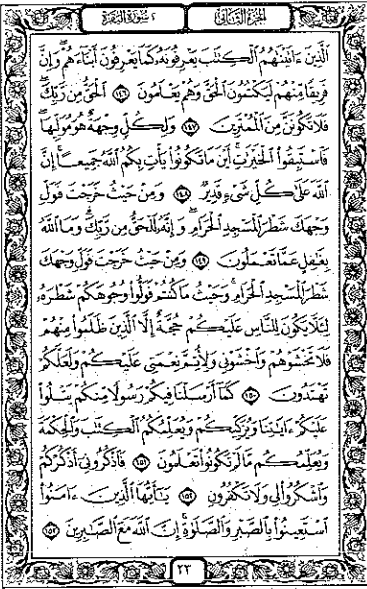 الجزء الثاني سورة البقرة
ٱلَّذِينَ ءَاتَيْنَٰهُمُ ٱلْكِتَٰبَ يَعْرِفُونَهُۥ كَمَا يَعْرِفُونَ أَبْنَآءَهُمْ ۖ وَإِنَّ
فَرِيقًا مِّنْهُمْ لَيَكْتُمُونَ ٱلْحَقَّ وَهُمْ يَعْلَمُونَ ١٤٦ ٱلْحَقُّ مِن رَّبِّكَ ۖ
فَلَا تَكُونَنَّ مِنَ ٱلْمُمْتَرِينَ ١٤٧ وَلِكُلٍّ وِجْهَةٌ هُوَ مُوَلِّيهَا ۖ
فَٱسْتَبِقُوا۟ ٱلْخَيْرَٰتِ ۚ أَيْنَ مَا تَكُونُوا۟ يَأْتِ بِكُمُ ٱللَّهُ جَمِيعًا ۚ إِنَّ
ٱللَّهَ عَلَىٰ كُلِّ شَىْءٍ قَدِيرٌ ١٤٨ وَمِنْ حَيْثُ خَرَجْتَ فَوَلِّ
وَجْهَكَ شَطْرَ ٱلْمَسْجِدِ ٱلْحَرَامِ ۖ وَإِنَّهُۥ لَلْحَقُّ مِن رَّبِّكَ ۗ وَمَا ٱللَّهُ
بِغَٰفِلٍ عَمَّا تَعْمَلُونَ ١٤٩ وَمِنْ حَيْثُ خَرَجْتَ فَوَلِّ وَجْهَكَ
شَطْرَ ٱلْمَسْجِدِ ٱلْحَرَامِ ۚ وَحَيْثُ مَا كُنتُمْ فَوَلُّوا۟ وُجُوهَكُمْ شَطْرَهُۥ
لِئَلَّا يَكُونَ لِلنَّاسِ عَلَيْكُمْ حُجَّةٌ إِلَّا ٱلَّذِينَ ظَلَمُوا۟ مِنْهُمْ
فَلَا تَخْشَوْهُمْ وَٱخْشَوْنِى وَلِأُتِمَّ نِعْمَتِى عَلَيْكُمْ وَلَعَلَّكُمْ
تَهْتَدُونَ ١٥٠ كَمَآ أَرْسَلْنَا فِيكُمْ رَسُولًا مِّنكُمْ يَتْلُوا۟
عَلَيْكُمْ ءَايَٰتِنَا وَيُزَكِّيكُمْ وَيُعَلِّمُكُمُ ٱلْكِتَٰبَ وَٱلْحِكْمَةَ
وَيُعَلِّمُكُم مَّا لَمْ تَكُونُوا۟ تَعْلَمُونَ ١٥١ فَٱذْكُرُونِىٓ أَذْكُرْكُمْ
وَٱشْكُرُوا۟ لِى وَلَا تَكْفُرُونِ ١٥٢ يَٰٓأَيُّهَا ٱلَّذِينَ ءَامَنُوا۟
ٱسْتَعِينُوا۟ بِٱلصَّبْرِ وَٱلصَّلَوٰةِ ۚ إِنَّ ٱللَّهَ مَعَ ٱلصَّٰبِرِينَ ١٥٣
٢٣